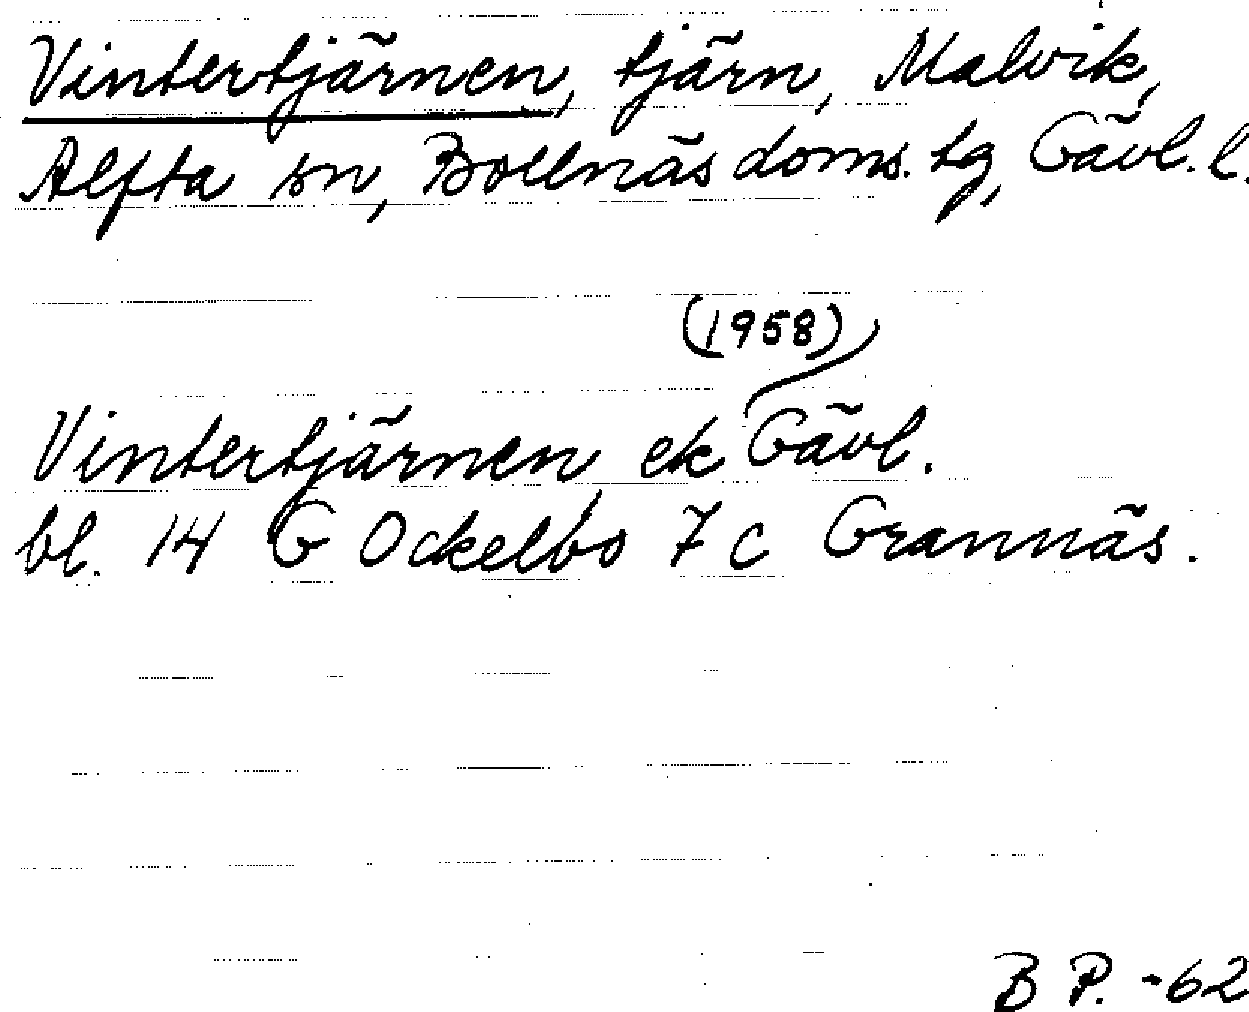 Vintertjärnen, tjärn, Malvik,
Alfta sn, Bollnäs doms. tg, Gävl. l.
(1958)
Vintertjärnen, ek Gävl.
bl. 14 G Ockelbo 7 c Grannäs.
B P. -62